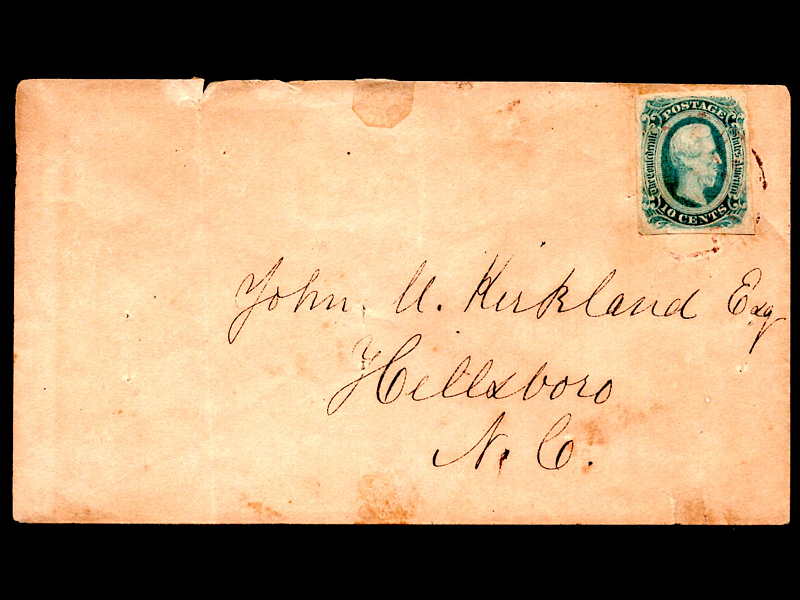 POSTAGE
The Confederate
States America
10 CENTS
John. U. Kirkland Esq
Hillsboro
N. C.